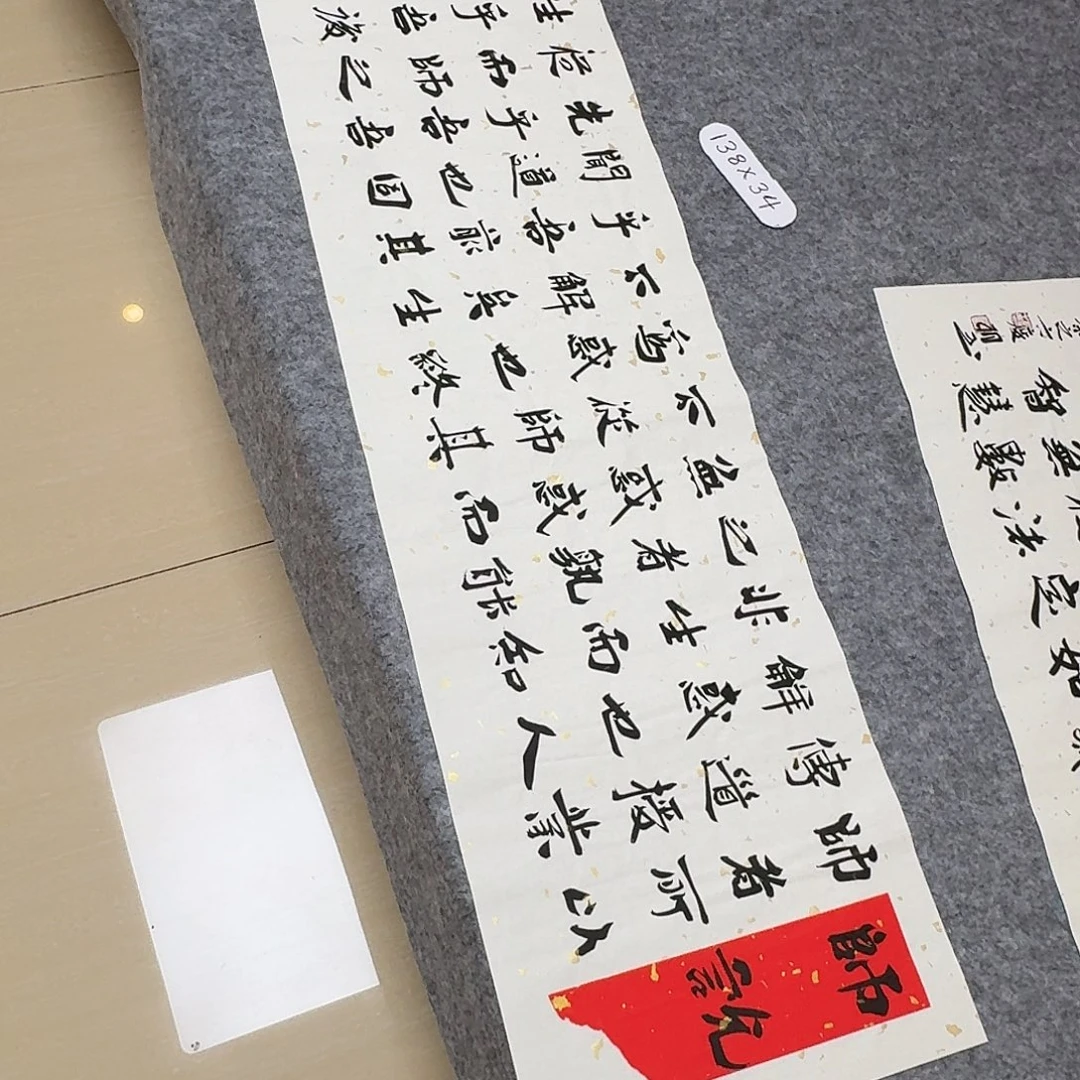 師說
師者所以
傳道授業
解惑也人
非生而知
之者孰能
無惑惑而
不從師其
為惑也終
不解矣生
乎吾前其
聞道也固
先乎吾吾
從而師之
生乎吾後
138×34
如
定
法
無數
智慧